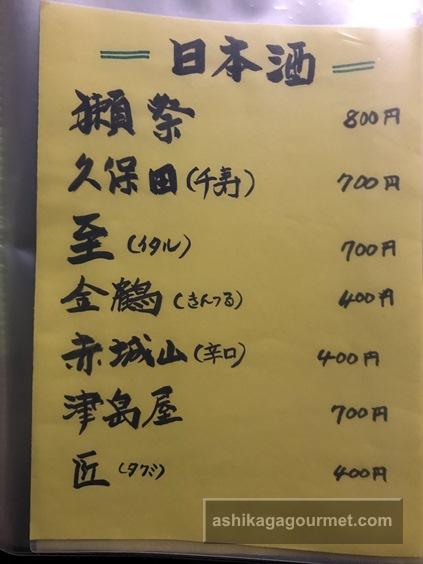 日本酒
獺祭 800円
久保田(千寿) 700円
至(イタル) 700円
金鶴(きんつる) 400円
赤城山(辛口) 400円
津島屋 700円
匠(タクミ) 400円
ashikagagourmet.com